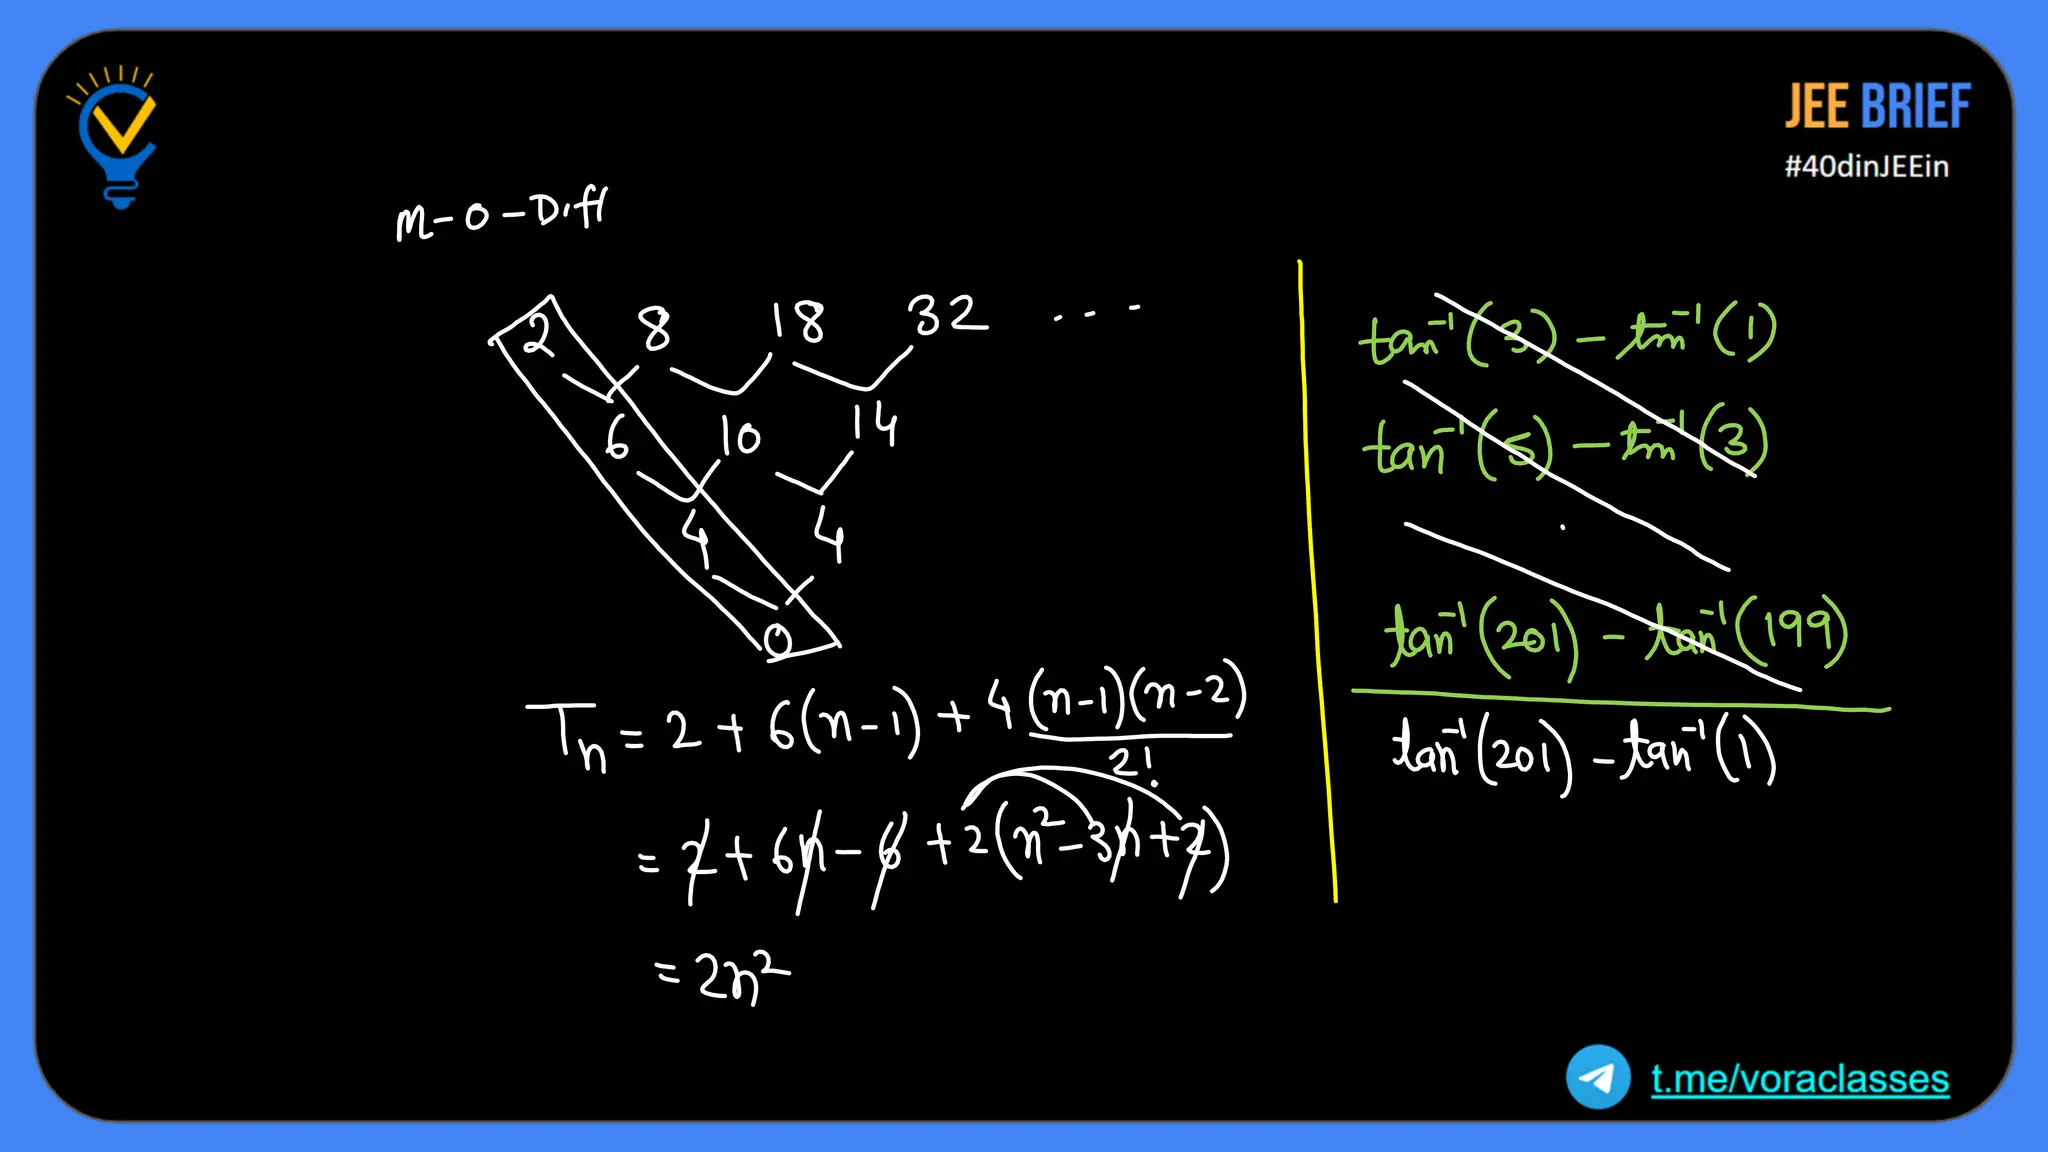 JEE BRIEF
#40dinJEEin
M-O-Diff
2 8 18 32 ...
6 10 14
4 4
0
Tn = 2 + 6(n-1) + 4 (n-1)(n-2) / 2!
= 2 + 6n - 6 + 2(n² - 3n + 2)
= 2n²
tan⁻¹(3) - tan⁻¹(1)
tan⁻¹(5) - tan⁻¹(3)
tan⁻¹(201) - tan⁻¹(199)
tan⁻¹(201) - tan⁻¹(1)
t.me/voraclasses